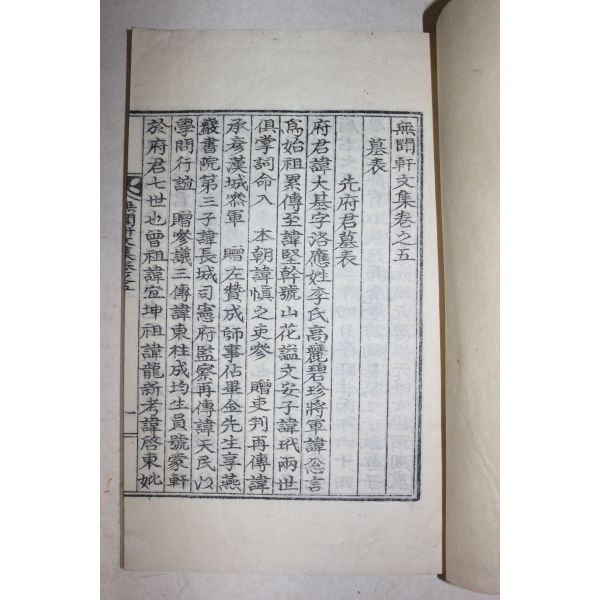 無聞軒文集卷之五
墓表
先府君墓表
府君諱大基字洛應姓李氏高麗碧珍將軍諱悤言
爲始祖累傳至諱堅幹號山花謚文安子諱玳兩世
俱掌詞命入 本朝諱愼之吏參 贈吏判再傳諱
承彦漢城叅軍 贈左贊成師事佔畢金先生享燕
巖書院第三子諱長城司憲府監察再傳諱天民以
學問行誼 贈參議三傳諱東柱成均生員號蒙軒
於府君七世也曾祖諱宜坤祖諱龍新考諱啓東妣
無聞軒文集卷之五
一